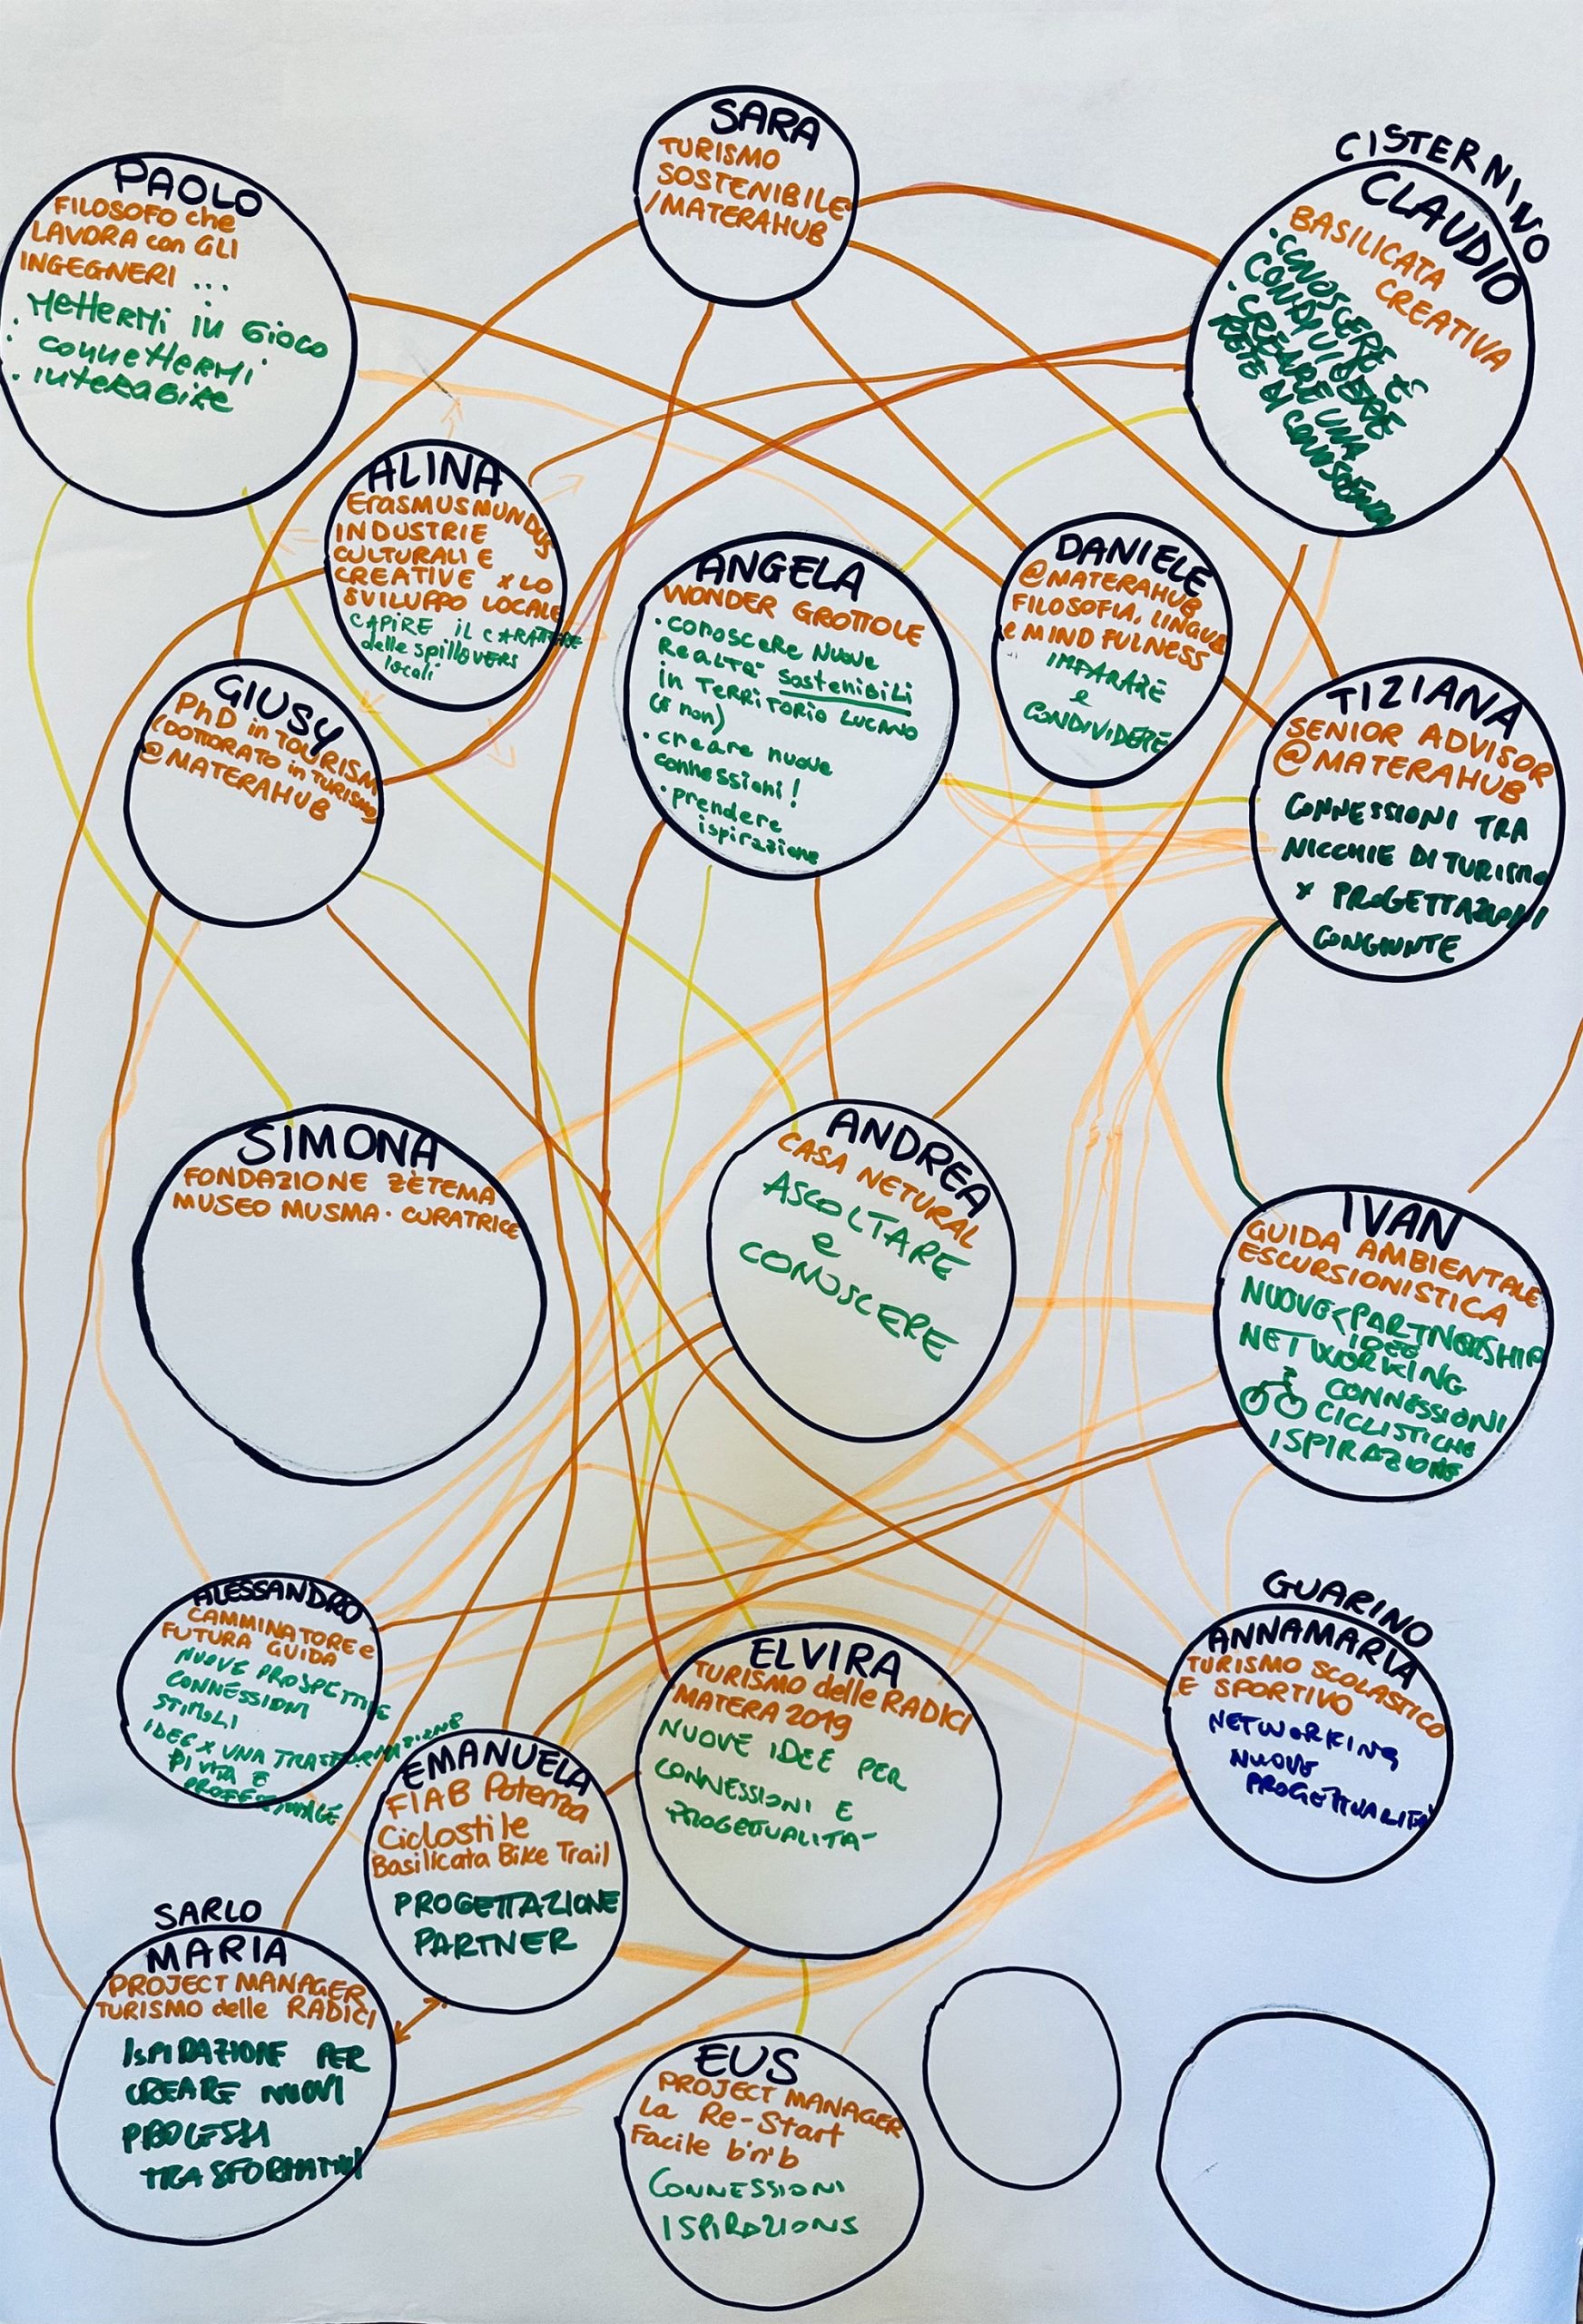 SARA
TURISMO
SOSTENIBILE
/MATERAHUB
PAOLO
FILOSOFO che
LAVORA con GLI
INGEGNERI ...
· METTERMI IN GIOCO
· CONNETTERMI
· INTERAGIRE
CISTERNINO
CLAUDIO
BASILICATA
CREATIVA
· CONOSCERE E
CONDIVIDERE
· CREARE UNA
RETE DI CONOSCENZA
ALINA
ERASMUS MUNDUS
INDUSTRIE
CULTURALI E
CREATIVE x LO
SVILUPPO LOCALE
CAPIRE IL CARATTERE
delle spillovers
locali
ANGELA
WONDER GROTTOLE
· CONOSCERE NUOVE
REALTÀ SOSTENIBILI
IN TERRITORIO LUCANO
(E NON)
· creare nuove
connessioni!
· prendere
ispirazione
DANIELE
@MATERAHUB
FILOSOFIA, LINGUE
e MINDFULNESS
IMPARARE
e
CONDIVIDERE
GIUSY
PhD in TOURISM
(DOTTORATO in TURISMO)
@MATERAHUB
TIZIANA
SENIOR ADVISOR
@MATERAHUB
CONNESSIONI TRA
NICCHIE DI TURISMO
x PROGETTAZIONI
CONGIUNTE
SIMONA
FONDAZIONE ZÈTEMA
MUSEO MUSMA · CURATRICE
ANDREA
CASA NETURAL
ASCOLTARE
e
CONOSCERE
IVAN
GUIDA AMBIENTALE
ESCURSIONISTICA
NUOVE < PARTNERSHIP
IDEE
NETWORKING
CONNESSIONI
CICLISTICHE
ISPIRAZIONE
ALESSANDRO
CAMMINATORE e
FUTURA GUIDA
NUOVE PROSPETTIVE
CONNESSIONI
STIMOLI
IDEE x UNA TRASFORMAZIONE
DI VITA E
PROFESSIONALE
EMANUELA
FIAB Potenza
Ciclostile
Basilicata Bike Trail
PROGETTAZIONE
PARTNER
ELVIRA
TURISMO delle RADICI
MATERA 2019
NUOVE IDEE PER
CONNESSIONI E
PROGETTUALITA'
GUARINO
ANNAMARIA
TURISMO SCOLASTICO
E SPORTIVO
NETWORKING
NUOVE
PROGETTUALITÀ
SARLO
MARIA
PROJECT MANAGER
TURISMO delle RADICI
ISPIRAZIONE PER
CREARE NUOVI
PROCESSI
TRASFORMATIVI
EUS
PROJECT MANAGER
La Re-Start
Facile b'n'b
CONNESSIONI
ISPIRAZIONS